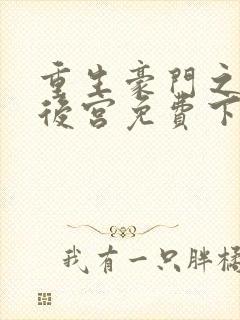 重生豪門之
後宮免費下
我有一只胖橘